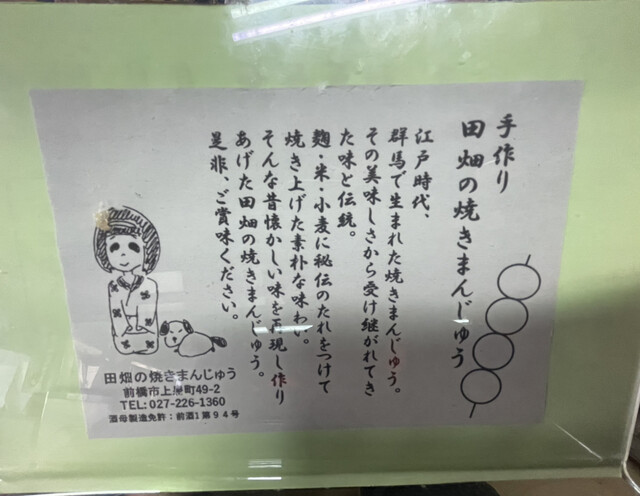 手作り
田畑の焼きまんじゅう
江戸時代、
群馬で生まれた焼きまんじゅう。
その美味しさから受け継がれてき
た味と伝統。
麹・米・小麦に秘伝のたれをつけて
焼き上げた素朴な味わい。
そんな昔懐かしい味を再現し作り
あげた田畑の焼きまんじゅう。
是非、ご賞味ください。
田畑の焼きまんじゅう
前橋市上泉町49-2
TEL:027-226-1360
酒母製造免許：前酒1第94号